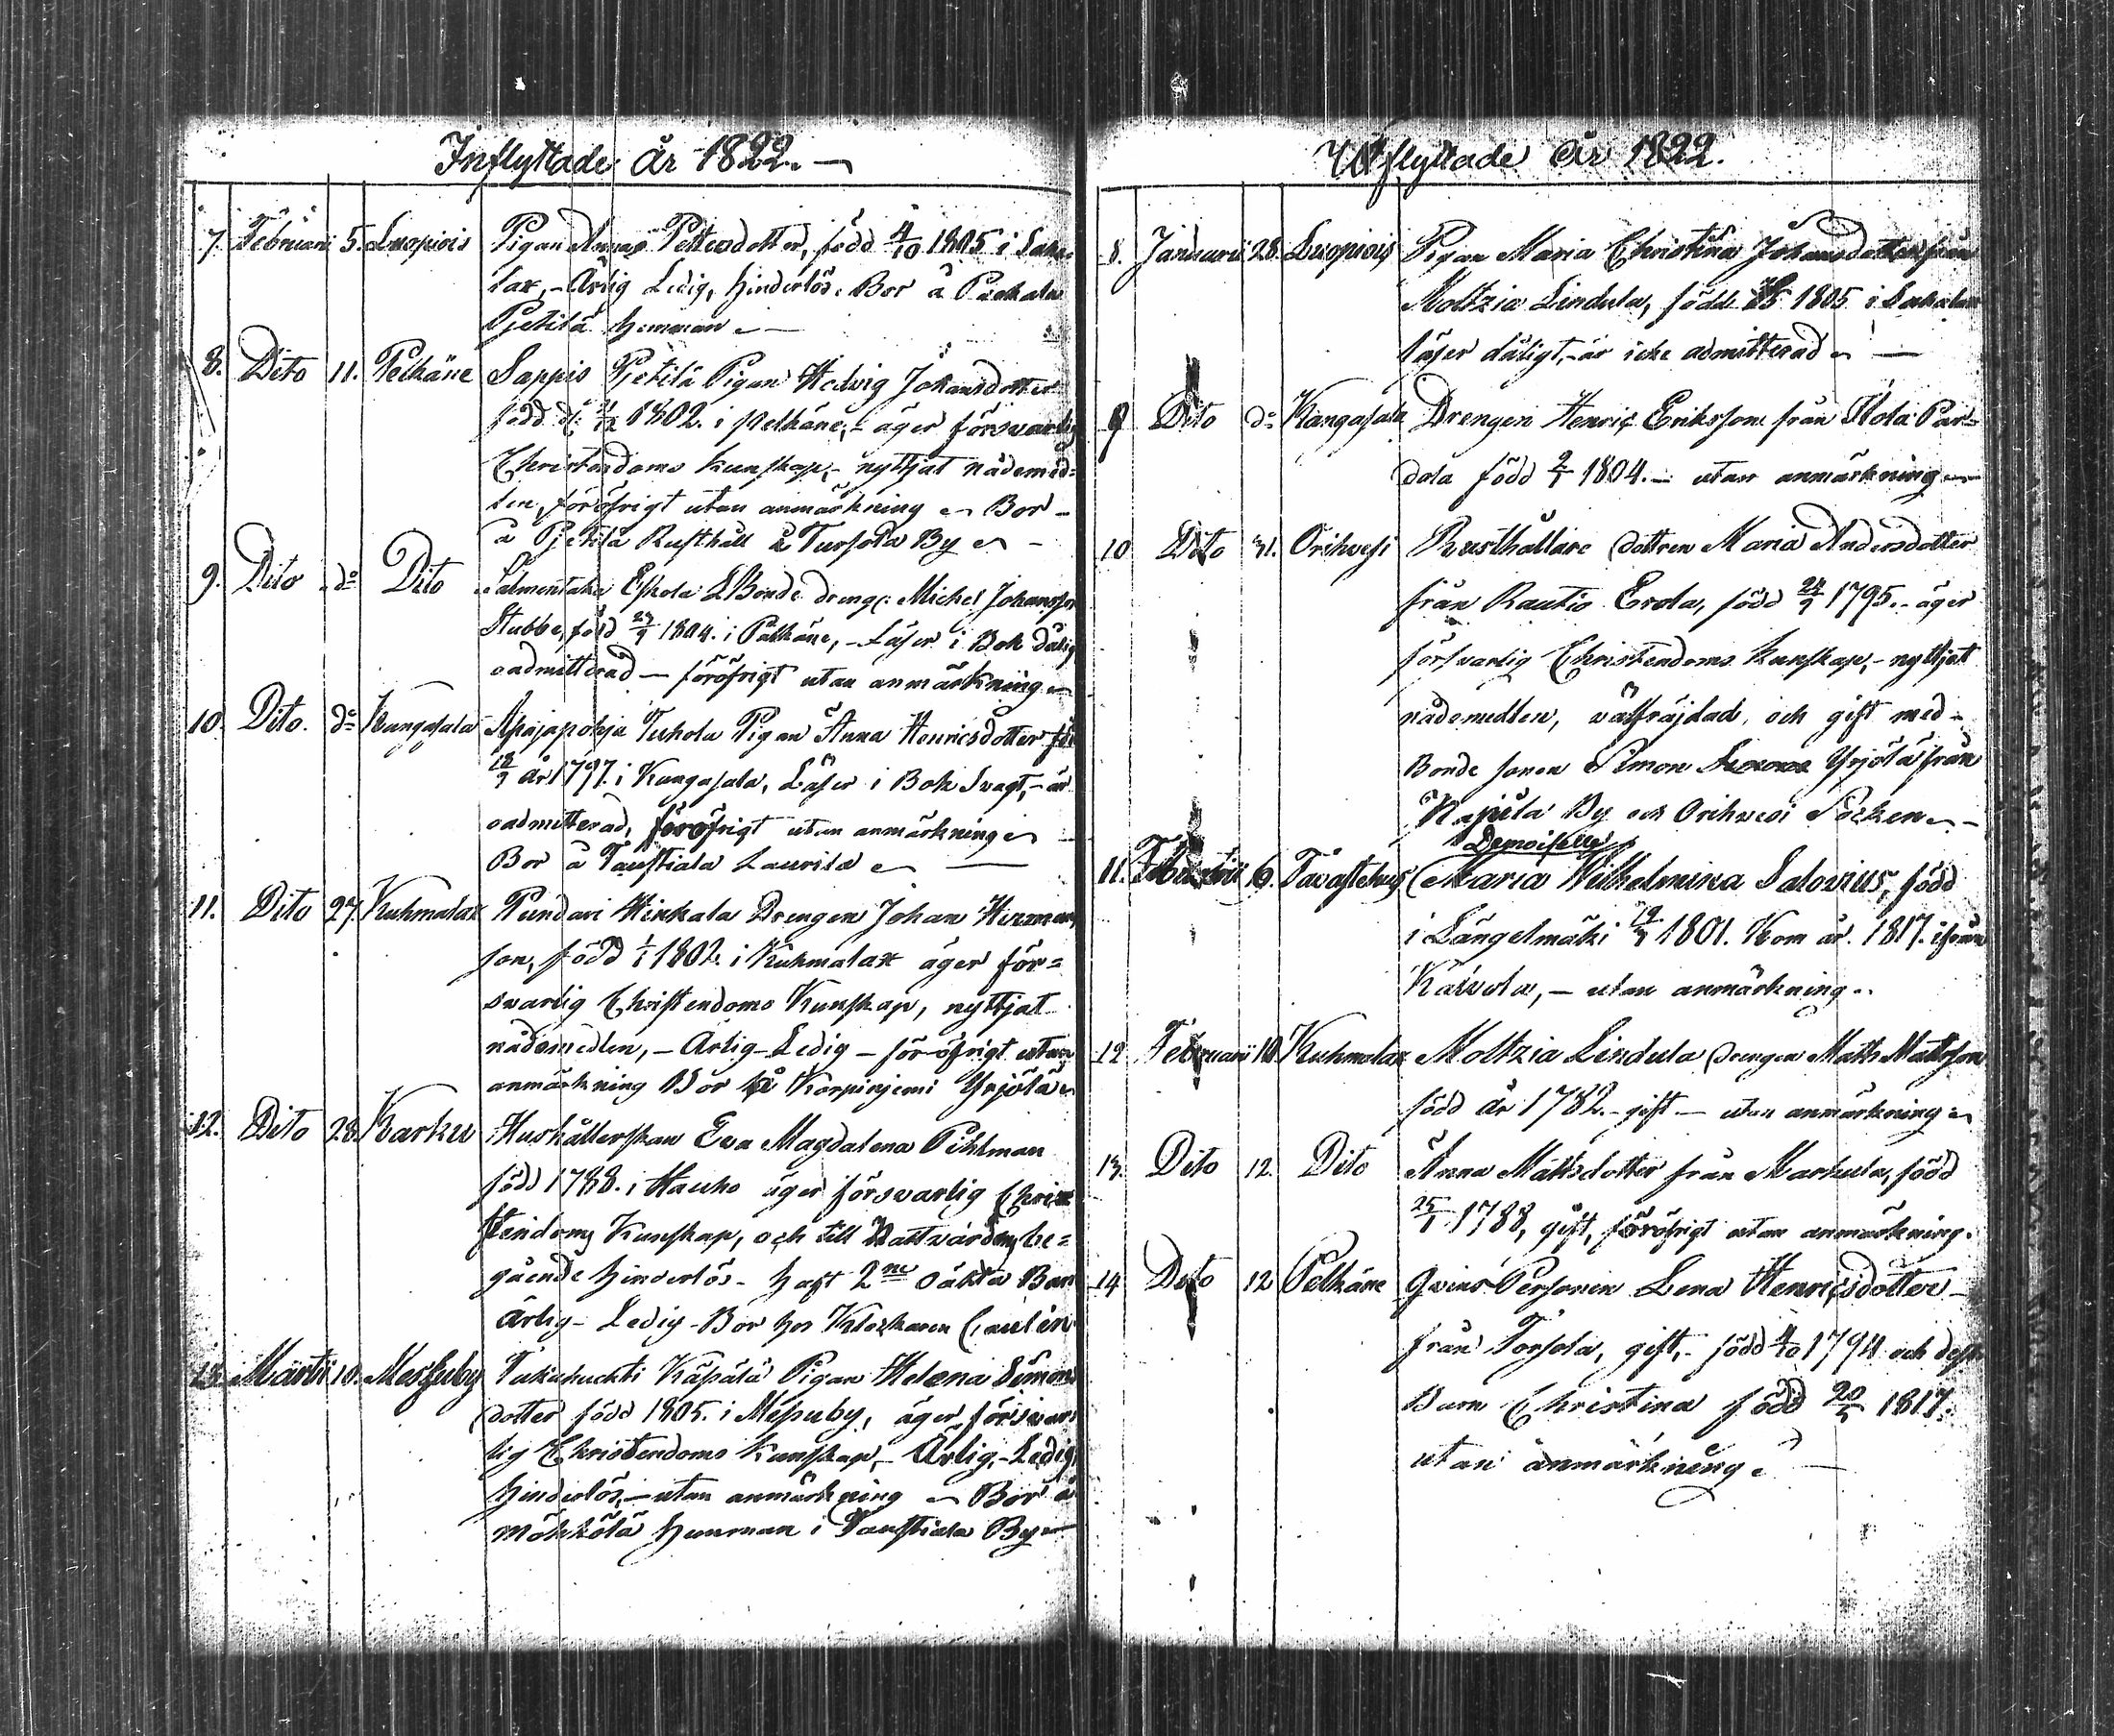 Inflyttade år 1822.
7. Februarii 5. Luopiois Pigan Anna Pettersdotter, född 4/10 1805 i Saha-
lax, - Ärlig Ledig, hinderlös. Bor å Pakala
Pjetilä hemman
8. Dito 11. Pelkäne Sappis Pjetilä Pigan Hedvig Johansdotter
född d. 1802. i Pelkäne, - äger försvarlig
Christendoms kunskap, - nyttjat nådemed-
len, föröfrigt utan anmärkning - Bor -
å Pjetilä Rusthåll å Tursola By
9. Dito do Dito Salmentaka Eskola LBonde dreng. Michel Johansson
Stubbe, född 29/9 1804. i Pälkäne, - Läser i Bok dålig
oadmitterad - föröfrigt utan anmärkning
10. Dito. do Kangasala Apajapohja Tuhola Pigan Anna Henricsdotter född
18/9 år 1797. i Kangasala, Läser i Bok Svagt, - är
oadmitterad, föröfrigt utan anmärkning
Bor å Taustiala Laurila
11. Dito 27. Kuhmalax Pundari Hinkala Drengen Johan Herman
son, född 1/1 1802. i Kuhmalax äger för=
svarlig Christendoms Kunskap, nyttjat
nådemedlen, - Ärlig - Ledig - för öfrigt utan
anmärkning Bor på Korpinjemi Yrjölä
12. Dito 28. Karku Hushållerskan Eva Magdalena Pihlman
född 1788. i Hauho äger försvarlig Chri
stendoms Kunskap, och till Nattvardens be=
gående hinderlös - haft 2ne oäkta Barn
ärlig - Ledig - Bor hos Klockaren Caulin
13. Martii 10. Messuby Takahuchti Käpälä Pigan Helena Simons
dotter född 1805. i Messuby, äger försvar
lig Christendoms Kunskap, - Ärlig, - Ledig
hinderlös, - utan anmärkning - Bor å
Möhkölä hemman i Taustiala By
Utflyttade år 1822.
8. Januarii 28. Luopiois Pigan Maria Christina Johansdotter från
Moltzia Lindula, född 1805 i Sahalax
läser dåligt, - är icke admitterad
9 Dito do Kangasala Drengen Henric Eriksson från Hola Par=
dola född 2/1 1804. - utan anmärkning
10 Dito 31. Orihwesi Rusthållare dottren Maria Andersdotter
från Rautio Erola, född 24/9 1795. - äger
försvarlig Christendoms Kunskap, - nyttjat
nådemedlen, välfräjdad, och gift med -
Bonde sonen Simon Yrjölä från
Kajula By och Orihwesi Socken
Demoiselle
11. Februarii 6. Tavastehus Maria Wilhelmina Salovius, född
i Längelmäki 19/7 1801. Kom år. 1817. ifrån
Kalvola, - utan anmärkning
12 Februarii 10. Kuhmalax Moltzia Lindula drengen Matts Mattsson
född år 1782. - gift - utan anmärkning
13. Dito 12. Dito Anna Mattsdotter från Markula, född
25/1 1788, gift, föröfrigt utan anmärkning.
14 Dito 12 Pelkäne Qvins Personen Lena Henricsdotter
från Torsola, gift, - född 4/10 1794 och dess
Barn Christina född 20/5 1817.
utan anmärkning